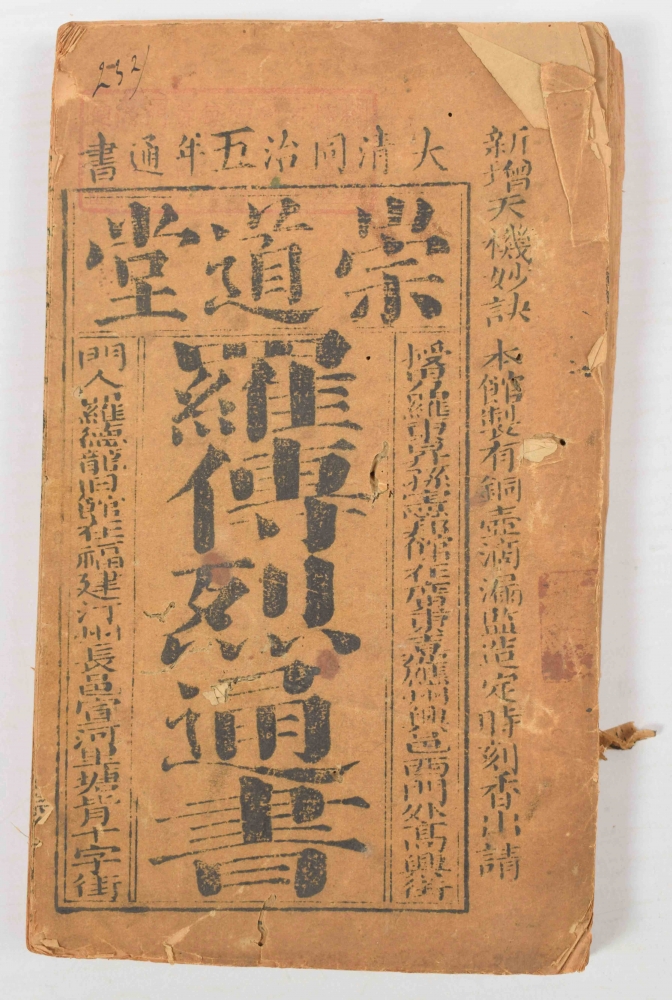 232)
大清同治五年通書
新增天機妙訣 本館製有銅壺滴漏監造定時刻香出請
崇道堂
授男羅東昇孫憲邦館在廣東嘉應州興邑西門外高興街
羅傳烈通書
門人羅德龍旧館在福建汀州長邑宣河里塘背十字街